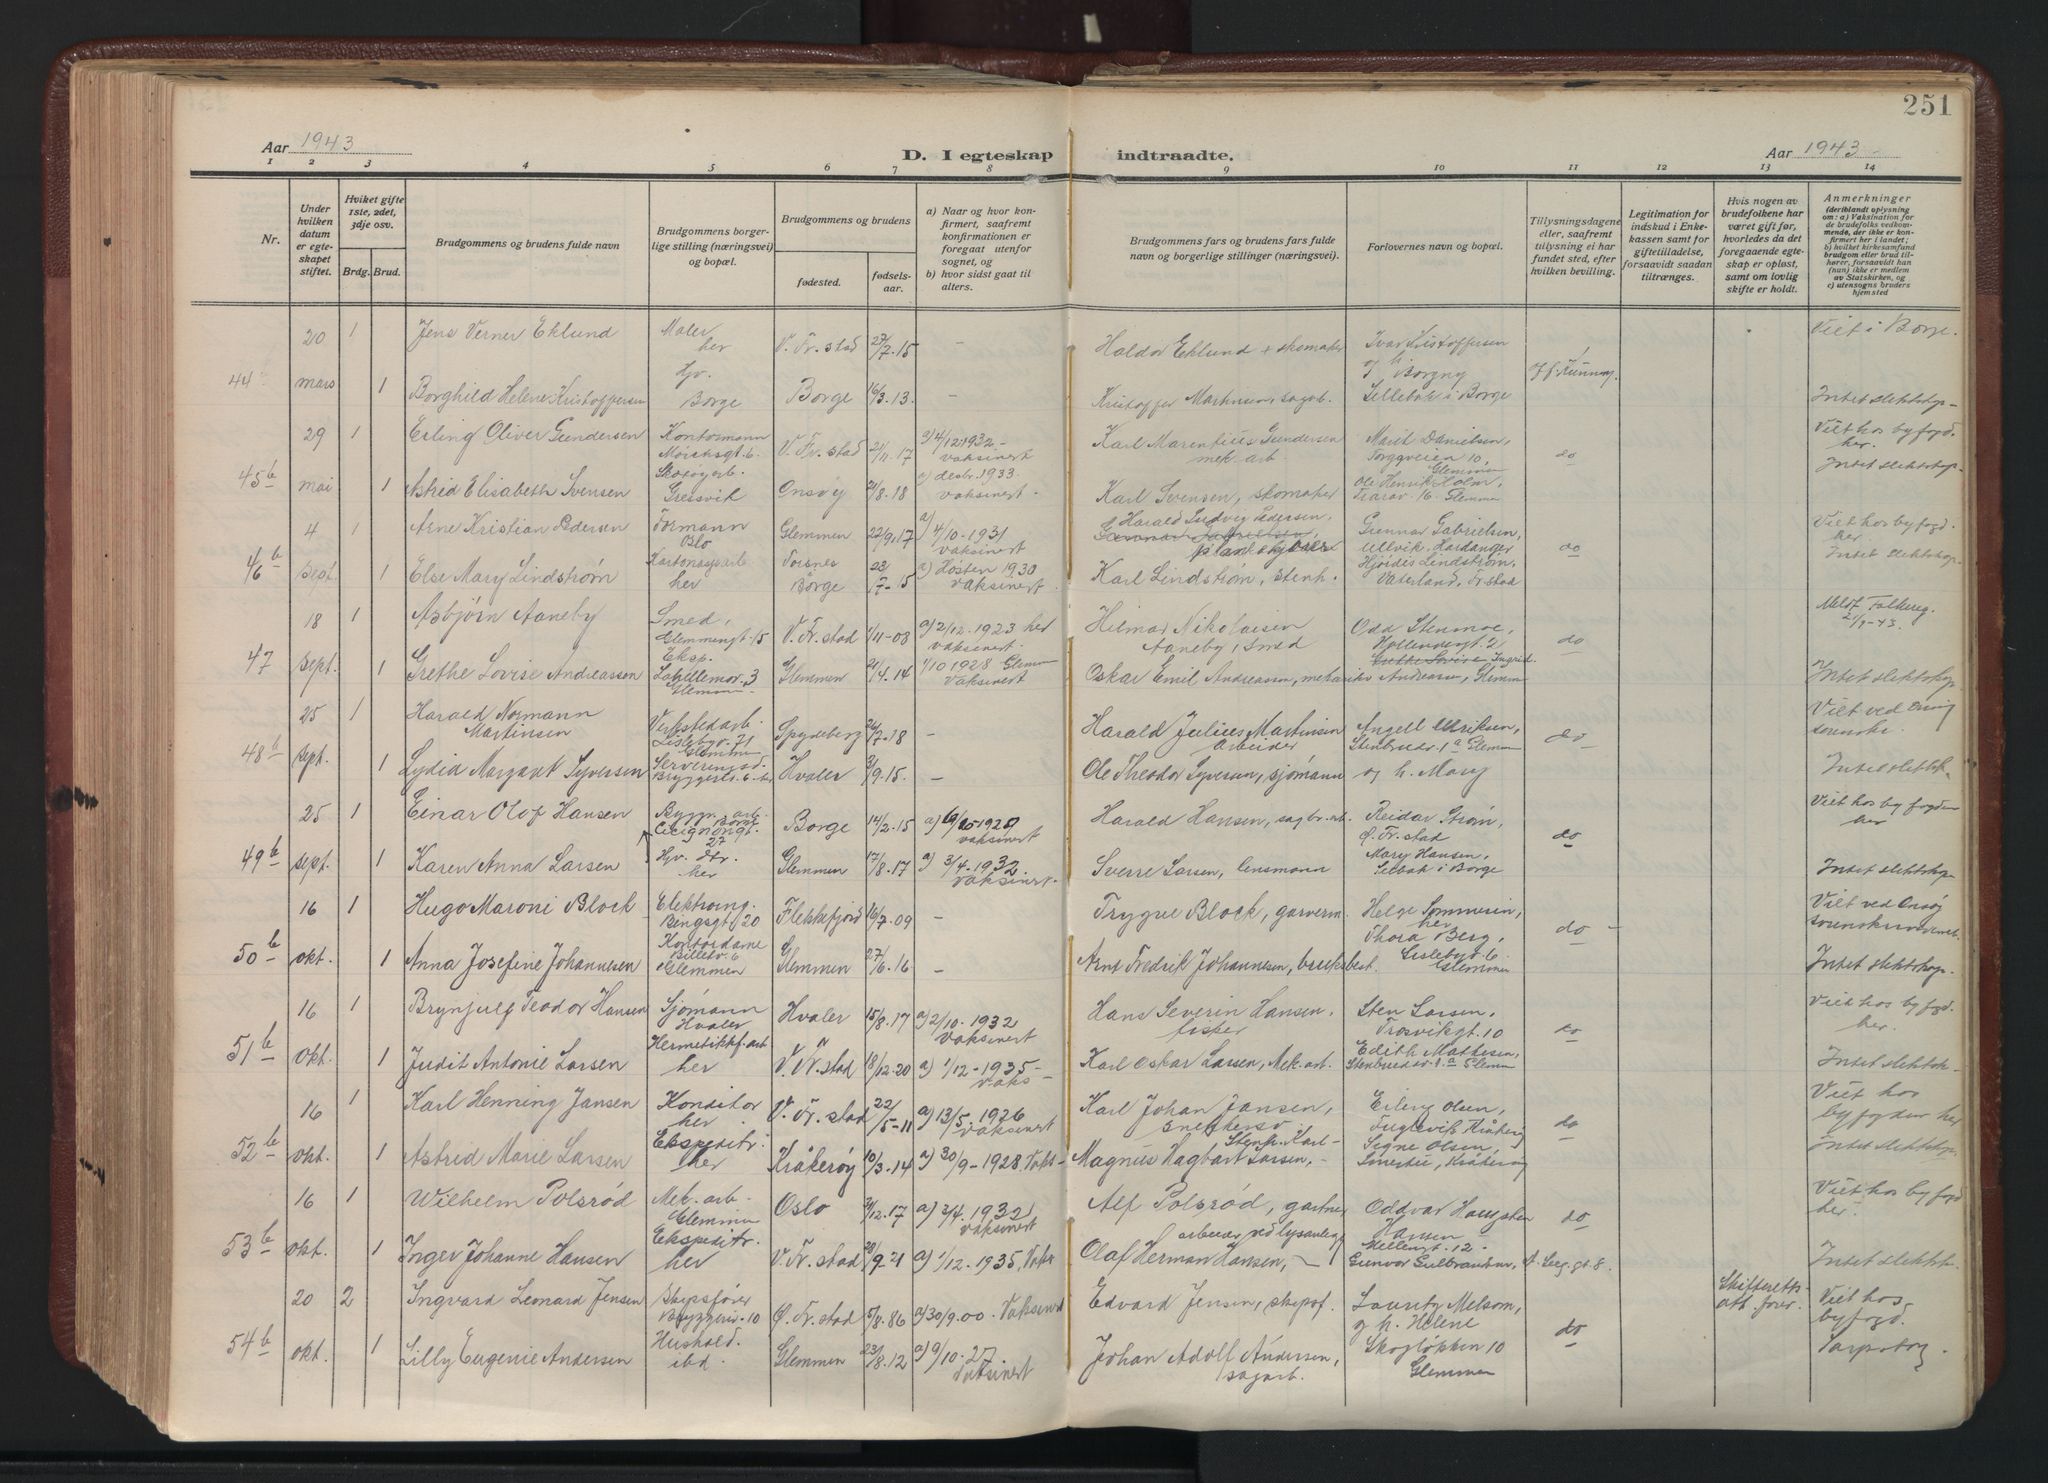 251
Aar 1943
D. I egteskap indtraadte.
Aar 1943
1 2 3 4 5 6 7 8 9 10 11 12 13 14
Nr.
Under hvilken datum er egteskapet stiftet.
Hviket gifte 1ste, 2det, 3dje osv.
Brdg. Brud.
Brudgommens og brudens fulde navn
Brudgommens borgerlige stilling (næringsvei) og bopæl.
Brudgommens og brudens
fødested.
fødselsaar.
a) Naar og hvor konfirmert, saafremt konfirmationen er foregaat utenfor sognet, og
b) hvor sidst gaat til alters.
Brudgommens fars og brudens fars fulde navn og borgerlige stillinger (næringsvei).
Forlovernes navn og bopæl.
Tillysningsdagene eller, saafremt tillysning ei har fundet sted, efter hvilken bevilling.
Legitimation for indskud i Enkekassen samt for giftetilladelse, forsaavidt saadan tiltrænges.
Hvis nogen av brudefolkene har været gift før, hvorledes da det foregaaende egteskap er opløst, samt om lovlig skifte er holdt.
Anmerkninger
(deriblandt oplysning om: a) Vaksination for de brudefolks vedkommende, der ikke er konfirmert her i landet; b) hvilket kirkesamfund brudgom eller brud tilhører, forsaavidt han (hun) ikke er medlem av Statskirken, og c) utensogns bruders hjemsted
20 1 Jens Verner Eklund Maler her V. Fr. stad 27/7.15 - Haldor Eklund + skomaker Ivar Kristoffersen Viet i Borge.
44 mars 1 Borghild Helene Kristoffersen Hv. Borge Borge 16/3.13. - Kristoffer Martinsen, sagarb. og h. Borgny Sellebak i Borge Intet slektskap
29 1 Erling Oliver Gundersen Kontormann V. Fr. stad 2/11.17 a) 4/12.1932 - vaksinert Karl Marentius Gundersen mek. arb. Marit Danielsen, Torggveien 10, Glemmen do Viet hos byfogd. her.
45 b mai 1 Astrid Elisabeth Svensen Gressvik Onsøy 21/8.18 a) desbr. 1933. vaksinert. Karl Svensen, skomaker Ole Henrik Holm, Trarav. 16. Glemmen Intet slektskap
4 1 Arne Kristian Pedersen Formann Glemmen 22/9.17 a) 4/10-1931 vaksinert Harald Ludvig Pedersen, plankekjører Gunnar Gabrielsen, Ullvik. Hardanger do Viet hos byfogd. her
46 b Sept. 1 Else Mary Lindstrøm Kartonagearb. her Torsnes Borge 22/7-15 a) Høsten 1930 vaksinert. Karl Lindstrøm, stenh. Hjørdis Lindstrøm, Vaterland, Fr. stad Intet slektskap
18 1 Asbjørn Aaneby Smed, Glemmengt. 15 V. Fr. stad 1/11-08 a) 2/12. 1923 her vaksinert. Hilmar Nikolaisen Aaneby, smed Odd Stenmoe, do Meldt Folkereg. 21/9-43.
47 sept. 1 Grethe Lovise Andreassen Eksp. Glemmen Glemmen 21/4.14 1/10 1928 Glemm vaksinert Oskar Emil Andreassen, mekaniker Ingrid Andreassen, Glemmen Intet slektskap.
25 1 Harald Normann Martinsen Verkstedarb. Lislebyv. 71 Glemmen Spydeberg 26/7.18 - Harald Julius Martinsen arbeider Angell Ulriksen, Stenbruddv. 1a Glemm do - Viet ved
48 b sept. 1 Lydia Margaret Syversen Hvaler 3/9.15. - Ole Theodor Syversen, sjømann og h. Mary Intet slektsk.
25 1 Einar Olof Hansen Bygn. arb. Borge Borge 14/2.15 vaksinert Harald Hansen, sagbr. arb. Reidar Strøm, Ø. Fr. stad do Viet hos byfogden her
49 b sept. 1 Karen Anna Larsen her Glemmen 17/8.17 a) 3/4. 1932. vaksinert. Sverre Larsen, lensmann Mary Hansen, Selbak i Borge Intet slektskap
16 1 Hugo Maroni Block Elektroing. Bingsgt. 20 Flekkefjord 16/7.09 - Trygve Block, garverm. Helge Sommesin, her do - Viet ved Onsøy sorenskriverembet.
50 b okt. 1 Anna Josefine Johannesen Kontordame Billebv. 6 Glemmen Glemmen 27/6.16 - Arnt Fredrik Johannesen, bruksbest. Thora Berg, Lislebyv. 6 Glemmen Intet slektskap.
16 1 Brynjulf Teodor Hansen Sjømann Hvaler Hvaler 15/8.17 a) 2/10. 1932 vaksinert Hans Severin Hansen, fisker Sten Larsen, Trosvikgt. 10 do Viet hos byfogd. her.
51 b okt. 1 Judit Antonie Larsen Hermetikkf. arb her V. Fr. stad 18/12.20 a) 1/12-1935- vaks Karl Oskar Larsen, Mek. arb. Edith Mathesen, Stenbruddv. 1a Glemm Intet slektsk.
16 1 Karl Henning Jansen Konditor her V. Fr. stad 22/5-11 a) 13/5. 1926 vaksinert Karl Johan Jansen, snekkersv. Eiling Olsen, Fuglevik, Kråkerøy do Viet hos byfogden her
52 b okt. 1 Astrid Marie Larsen Ekspeditr. her Kråkerøy 10/3.14 a) 30/9-1928. Vaks- Magnus Hagbart Larsen, - Stenh. Signe Olsen, Kråkerøy Intet slektskap
16 1 Wilhelm Polsrød Mek. arb. Glemmen Oslo 2/12.17 a) 3/4. 1932 vaksinert Alf Polsrød, gartner Oddvar do Viet hos byfogd her.
53 b okt. 1 Inger Johanne Hansen Ekspeditr. her V. Fr. stad 28/9 21 a) 1/12. 1935, Vaks Olaf Herman Hansen, - arbeider ved lysanlegg Gunvor Gulbrandsen, Intet slektsk.
20 2 Ingvard Leonard Jensen Skipsfører Ø. Fr. stad 5/8.86 a) 30/9.00. Vaksinert Edvard Jensen, skipsf. Lauritz Melsom, og h. Helene do Skifteretts att. forev. Viet hos byfogd. Sarpsborg
54 b okt. 1 Lilly Eugenie Andersen Hushold. ibd. Glemmen 23/8.12 a) 9/10.27. vaksinert Johan Adolf Andersen, sagarb. Skogløkken 10 Glemmen